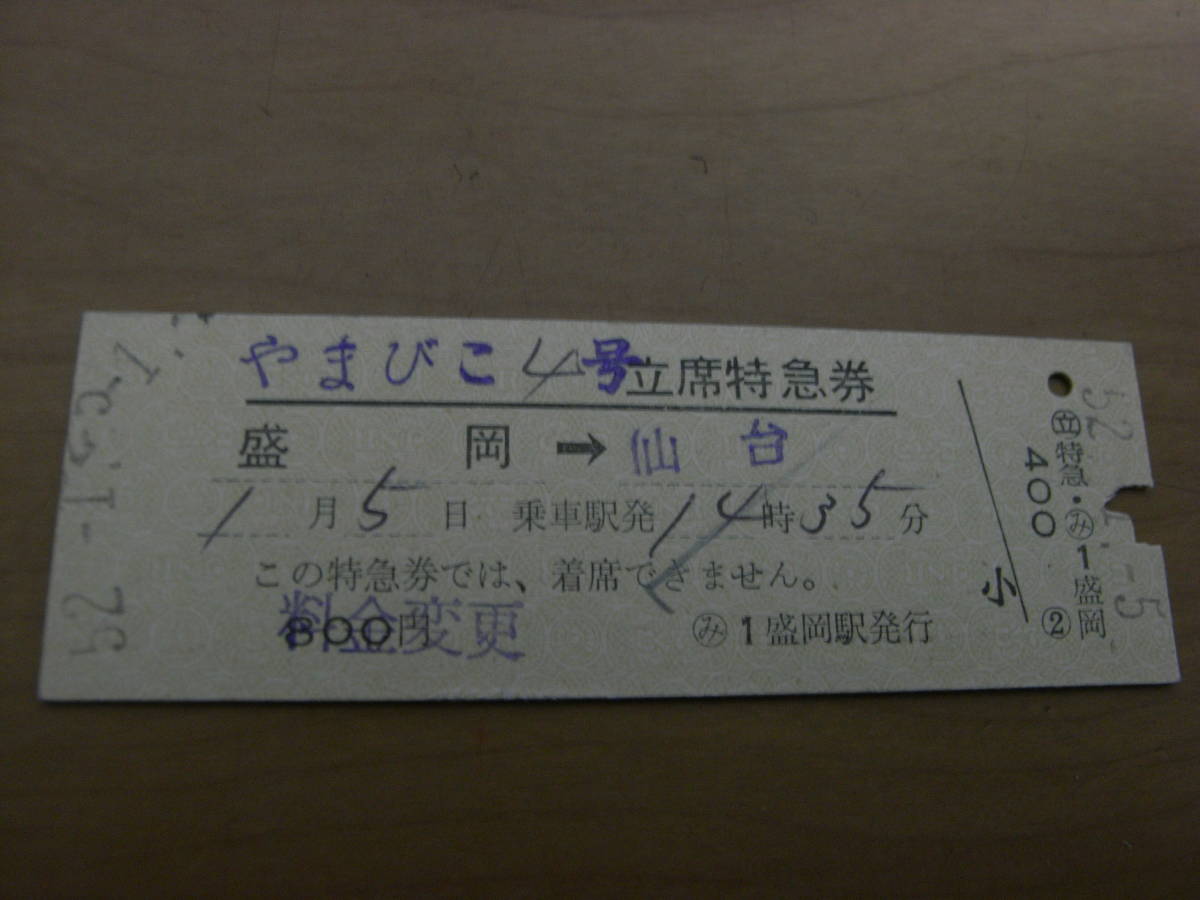 やまびこ4号立席特急券
盛岡→仙台
1月5日 乗車駅発14時35分
この特急券では、着席できません。
800円 料金変更
㋯1盛岡駅発行
小
立特急・㋯1盛岡
400
②
52
-5
52.-1.